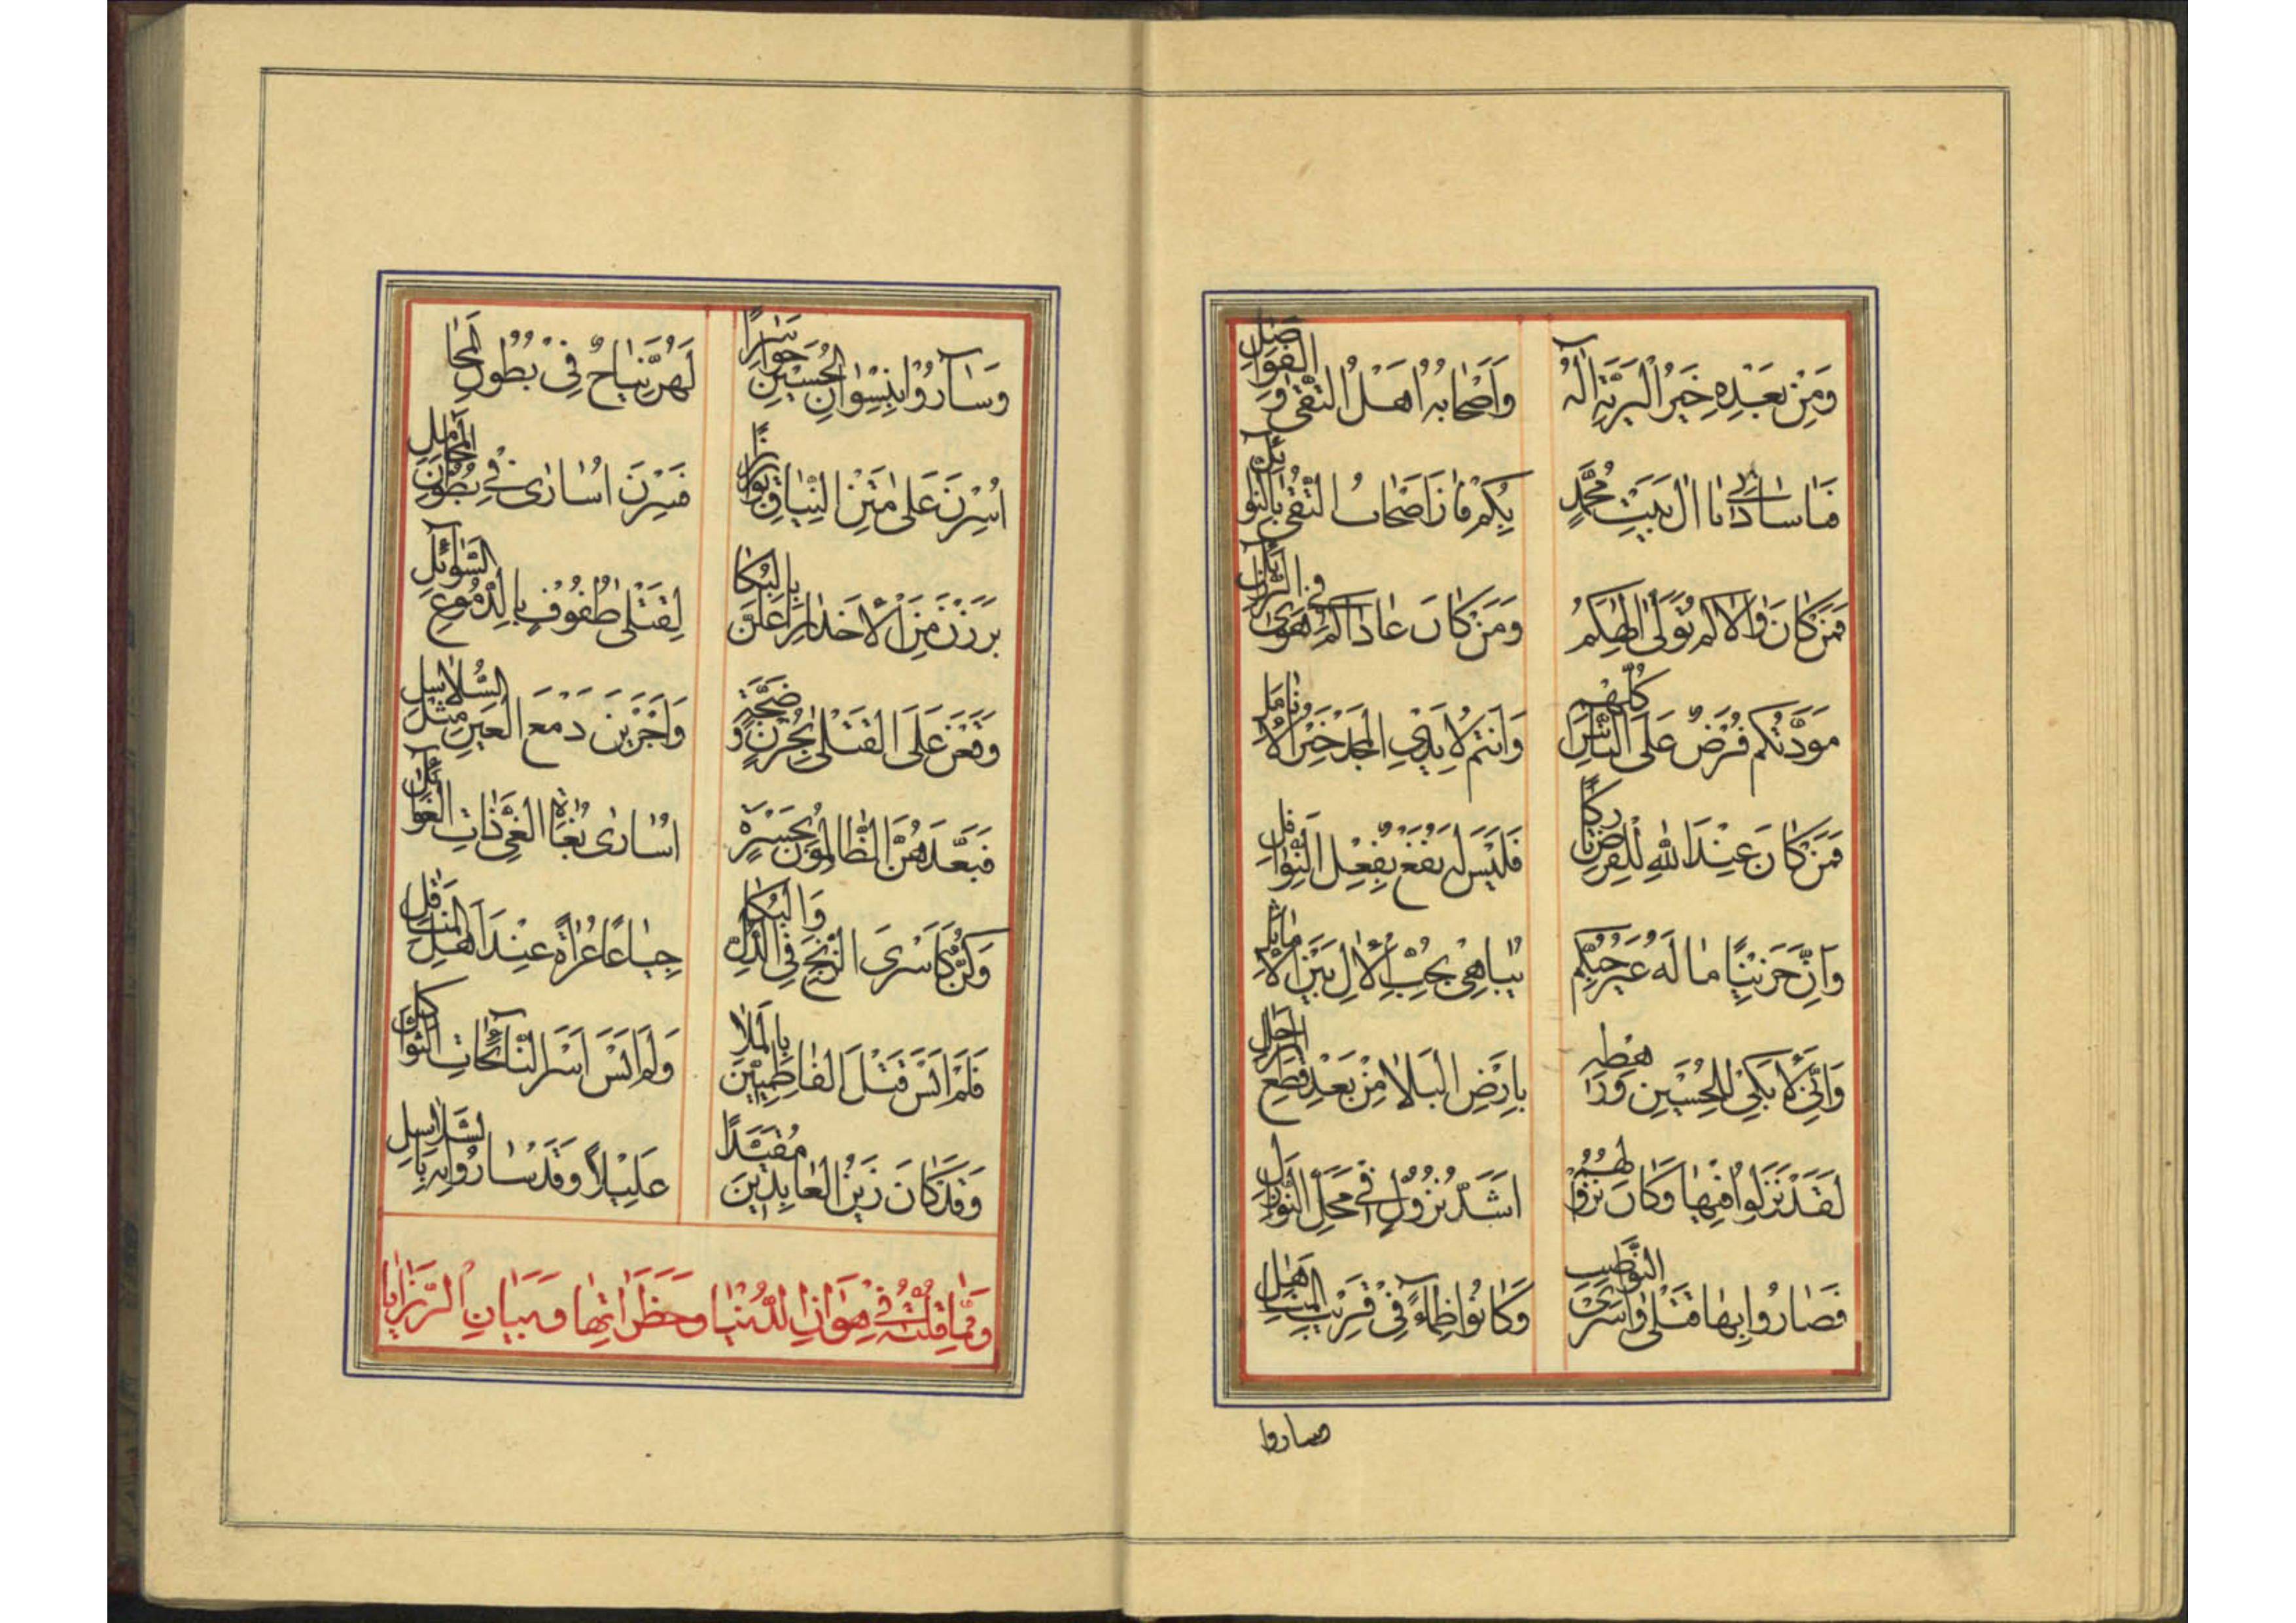 وَمِنْ بَعْدِهِ خَيْرُ الْبَرِيَّةِ آلُهُ وَاَصْحٰابُهُ اَهْلُ التُّقٰى وَ الْفَوٰاضِلِ
فَاسٰادٰاتِى يٰا اٰلَ بَيْتِ مُحَمَّدٍ بِكُمْ فٰازَ اَصْحٰابُ التُّقٰى بِالنَّوٰآئِلِ
فَمَنْ كٰانَ وٰالاكُمْ تَوَلّٰى اِلٰهَكُمْ وَمَنْ كٰانَ عٰادٰاكُمْ هَوٰى فِى الزَّلٰازِلِ
مَوَدَّتُكُمْ فَرْضٌ عَلَى النّٰاسِ كُلِّهِمْ وَاَنْتُمْ لِاَيْدِى الْمَجْدِ خَيْرُ الْاَنٰامِلِ
فَمَنْ كٰانَ عِنْدَ اللهِ لِلْفَرْضِ تٰارِكًا فَلَيْسَ لَهُ نَفْعٌ بِفِعْلِ النَّوٰافِلِ
وَاِنَّ حَزِينًا مٰا لَهُ غَيْرُ حُبِّكُمْ يُبٰاهِى بِحُبِّ الْاٰلِ بَيْنَ الْاَمٰاثِلِ
وَاِنِّى لَاَبْكِى لِلْحُسَيْنِ وَرَهْطِهِ بِاَرْضِ الْبَلٰا مِنْ بَعْدِ قَطْعِ الْمَرٰاحِلِ
لَقَدْ نَزَلُوا فِيهٰا وَكٰانَ نُزُولُهُمْ اَشَدَّ نُزُولٍ فِى مَحَلِّ النَّوٰازِلِ
فَصٰارُوا بِهٰا قَتْلٰى وَاَسْرَى النَّوٰاصِبِ وَكٰانُوا ظِمٰآءً فِى قَرِيبِ الْمَنٰاهِلِ
وسٰاروا
وَسٰارُوا بِنِسْوٰانِ الْحُسَيْنِ حَوٰاسِرًا لَهُنَّ نِيٰاحٌ فِى بُطُونِ
اُسِرْنَ عَلٰى مَتْنِ النِّيٰاقِ بَوٰارِزًا فَسِرْنَ اُسٰارٰى فِى بُطُونِ الْمَحٰامِلِ
بَرَزْنَ مِنَ الْاَخْدٰارِ اَعْلَنَّ بِالْبُكٰا لِقَتْلٰى طُفُوفٍ بِالدُّمُوعِ السَّوٰآئِلِ
وَقَعْنَ عَلَى الْقَتْلٰى بِحُزْنٍ وَضَجَّةٍ وَاَجْرَيْنَ دَمْعَ الْعَيْنِ مِثْلَ السَّلٰاسِلِ
فَبَعَّدَهُنَّ الظّٰالِمُونَ بِحَسْرَةٍ اُسٰارٰى بُغٰاةِ الْغَىِّ ذٰاتِ الْغَوٰآئِلِ
وَكُنَّ كَاَسْرَى الزَّنْجِ فِى الذُّلِّ وَالْبُكٰا جِيٰاعًا عُرٰاةً عِنْدَ اَهْلِ الْمَنٰاقِلِ
فَلَمْ اَنْسَ قَتْلَ الْفٰاطِمِيِّينَ بِالْمَلٰا وَلَمْ اَنْسَ اَسْرَ النّٰآئِحٰاتِ الثَّوٰاكِلِ
وَقَدْ كٰانَ زَيْنُ الْعٰابِدِينَ مُقَيَّدًا عَلِيلًا وَقَدْ سٰارُوا بِهِ بِالسَّلٰاسِلِ
وَمِمّٰا قُلْتُهُ فِى هَوٰانِ الدُّنْيٰا وَخَطَرٰاتِهٰا وَبَيٰانِ الرَّزٰايٰا